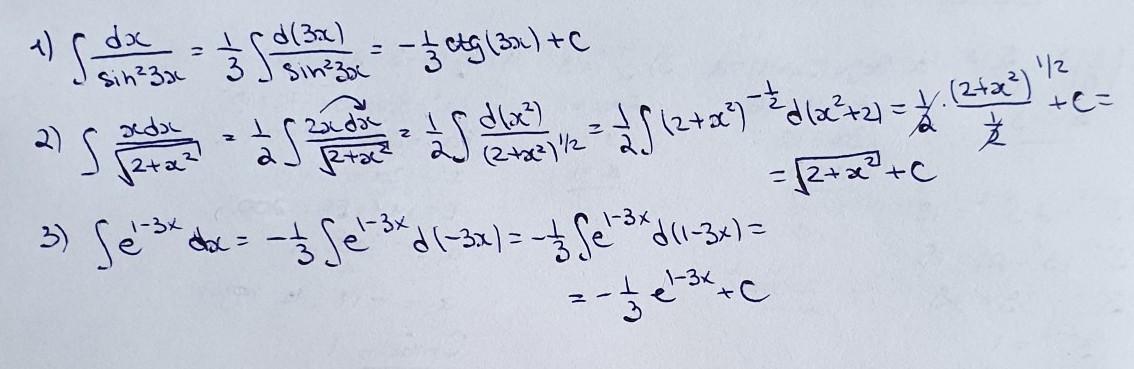 1) ∫ dx/sin²3x = 1/3 ∫ d(3x)/sin²3x = -1/3 ctg(3x) + C
2) ∫ xdx/√(2+x²) = 1/2 ∫ 2xdx/√(2+x²) = 1/2 ∫ d(x²)/(2+x²)^1/2 = 1/2 ∫ (2+x²)^(-1/2) d(x²+2) = 1/2 · (2+x²)^1/2 / (1/2) + C =
= √(2+x²) + C
3) ∫ e^(1-3x) dx = -1/3 ∫ e^(1-3x) d(-3x) = -1/3 ∫ e^(1-3x) d(1-3x) =
= -1/3 e^(1-3x) + C